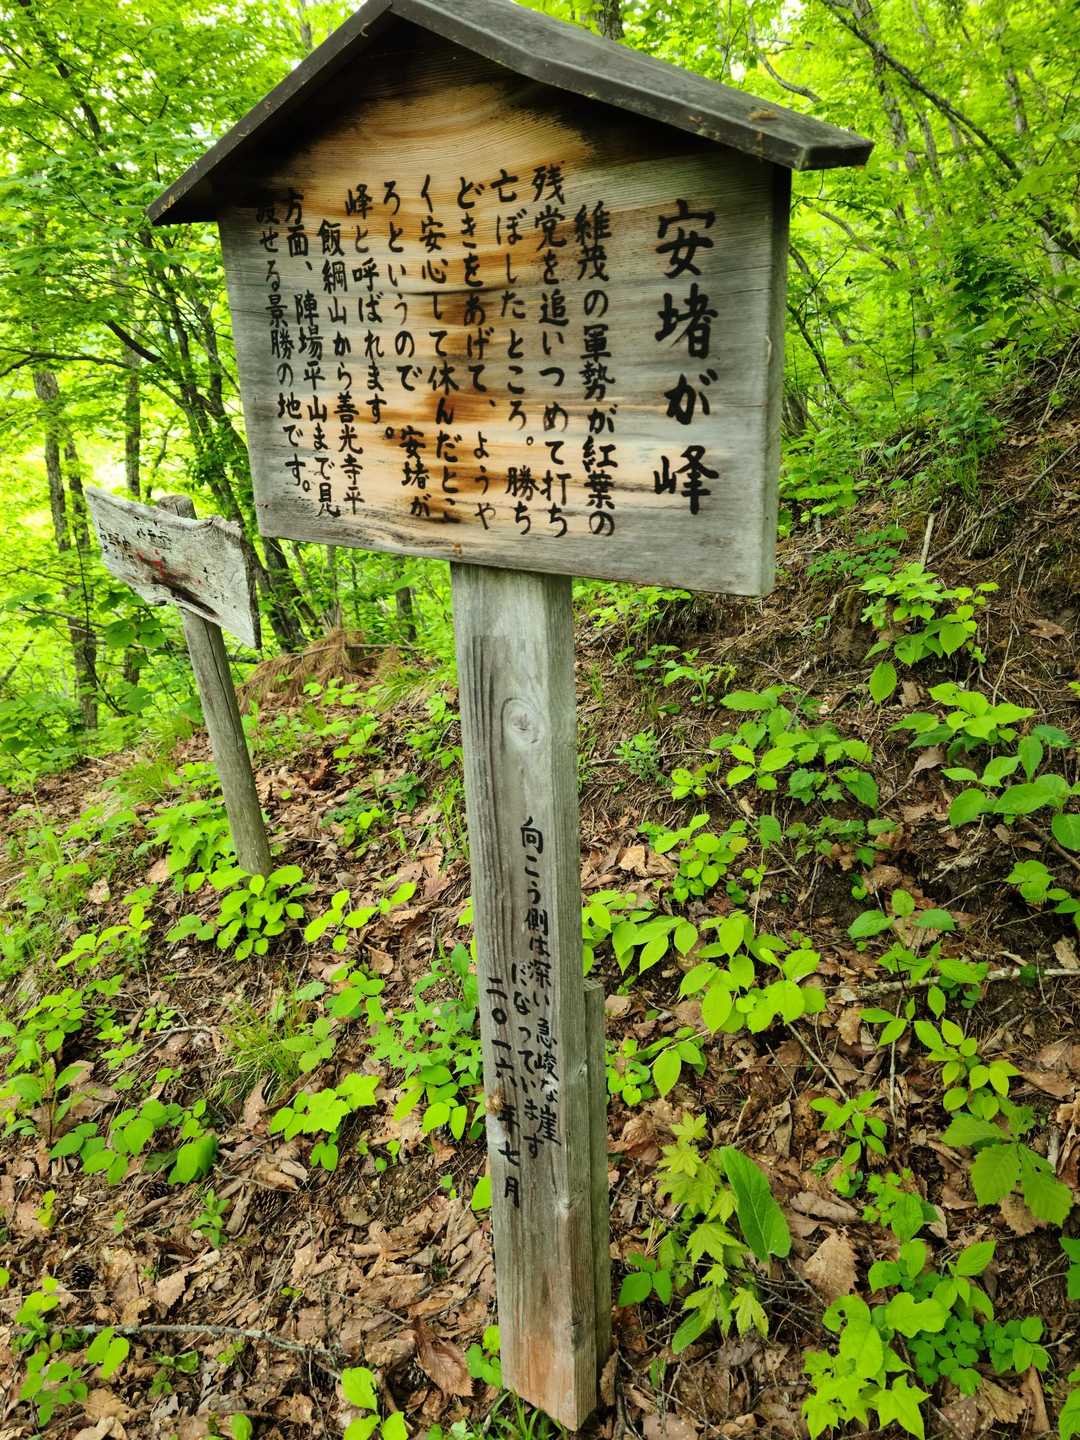 安堵が峰
維茂の軍勢が紅葉の
残党を追いつめて打ち
亡ぼしたところ。勝ち
どきをあげて、ようや
く安心して休んだとこ
ろというので 安堵が
峰と呼ばれます。
飯綱山から善光寺平
方面、陣場平山まで見
渡せる景勝の地です。
向こう側は深い急峻な崖
になっています
二〇一六年七月